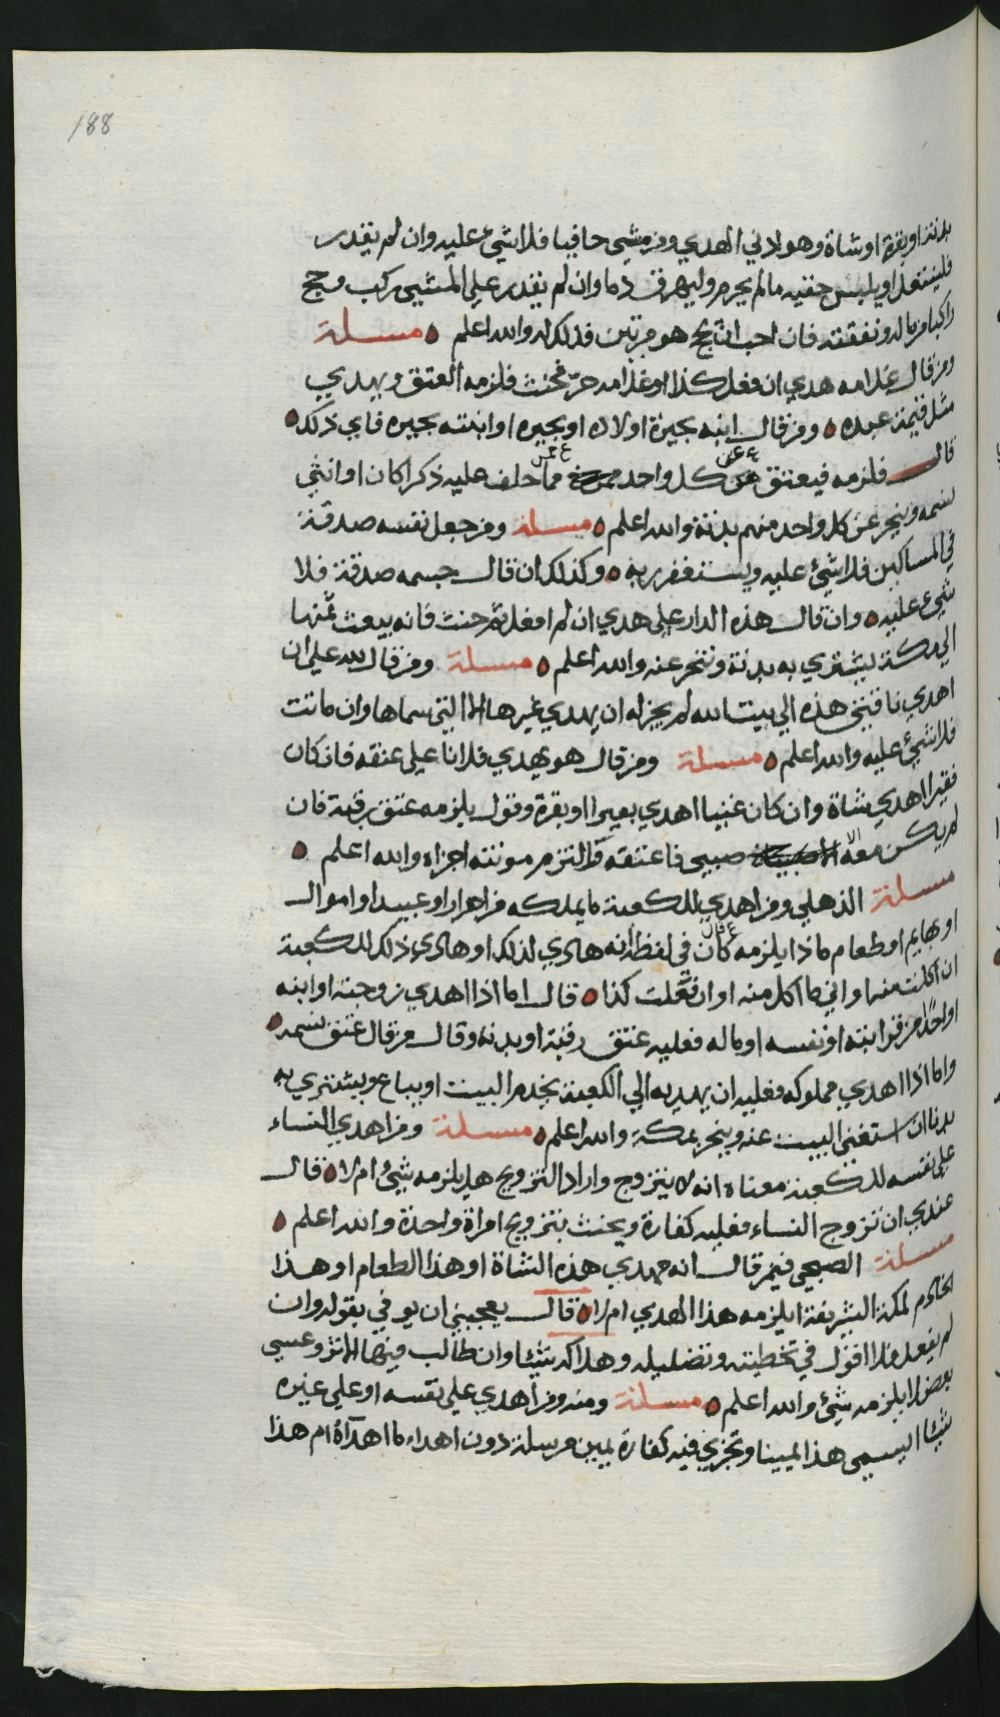 188
بدنة او بقرة او شاة وهو ادني الهدي ومن مشي حافيا فلا شيء عليه وان لم يقدر
فلينتعل او يلبس خفيه ما لم يحرم وليهرق دما وان لم يقدر علي المشي ركب وحج
راكبا من ماله ونفقته فان احب ان يحج هو مرتين فذلك له والله اعلم ه مسئلة
ومن قال غلامه هدي ان فعل كذا او غلامه حر فحنث فلزمه العتق ويهدي
مثل قيمة عبده ه ومن قال ابنه بحيرة اولاده او بحيره او ابنته بحيره فاي ذلك ه
قال فلزمه فيعتق عن كل واحد مما حلف عليه ذكرا كان او انثي
نسمه وينحر عن كل واحد منهم بدنة والله اعلم ه مسئلة ومن جعل نفسه صدقة
في المساكين فلا شيء عليه ويستغفر ربه ه وكذلك ان قال جسمه صدقة فلا
شيء عليه ه وان قال هذه الدار علي هدي ان لم افعل ثم حنث فانه يبعث بثمنها
الي مكة ليشتري به بدنة وتنحر عنه والله اعلم ه مسئلة ومن قال لله علي ان
اهدي ناقتي هذه الي بيت الله لم يجز له ان يهدي غيرها الا التي سماها وان ماتت
فلا شيء عليه والله اعلم ه مسئلة ومن قال هو يهدي فلانا علي عنقه فان كان
فقيرا اهدي شاة وان كان غنيا اهدي بعيرا او بقرة وقول يلزمه عتق رقبة فان
لم يكن معه الا صبي فاعتقه والتزم مونته اجزاه والله اعلم ه
مسئلة الذهلي ومن اهدي للكعبة ما يملكه من احرار او عبيد او اموال
او بهايم او طعام ماذا يلزمه كان في لفظ انه هادي لذلك او هادي ذلك للكعبة
ان اكلت منه او اني ما اكل منه او ان فعلت كذا ه قال اما اذا اهدي زوجته او ابنه
او احدا من قرابته او نفسه او ماله فعليه عتق رقبة او بدنة وقال من قال عتق نسمه ه
واما اذا اهدي مملوكه فعليه ان يهديه الي الكعبة يخدم البيت او يباع ويشتري به
بدنا ان استغني البيت عنه وينحر بمكة والله اعلم ه مسئلة ومن اهدي النساء
علي نفسه للكعبة معناه انه لا يتزوج واراد التزويج هل يلزمه شيء ام لا ه قال
عندي ان تزوج النساء فعليه كفارة ويحنث بتزويج امراة واحدة والله اعلم ه
مسئلة الصبحي فيمن قال انه مهدي هذه الشاة او هذا الطعام او هذا
الخادم لمكة الشريفة ايلزمه هذا الهدي ام لا ه قال يعجبني ان يوفي بقوله وان
لم يفعل فلا اقول في تخطيته وتضليله وهلاكه شيئا وان طالب فيها الاثر وعسي
بعض لا يلزمه شيء والله اعلم ه مسئلة ومنه ومن اهدي علي نفسه او علي غيره
شيئا ايسمي هذا يمينا وتجزي فيه كفارة يمين مرسلة دون اهداء ما اهداه ام هذا